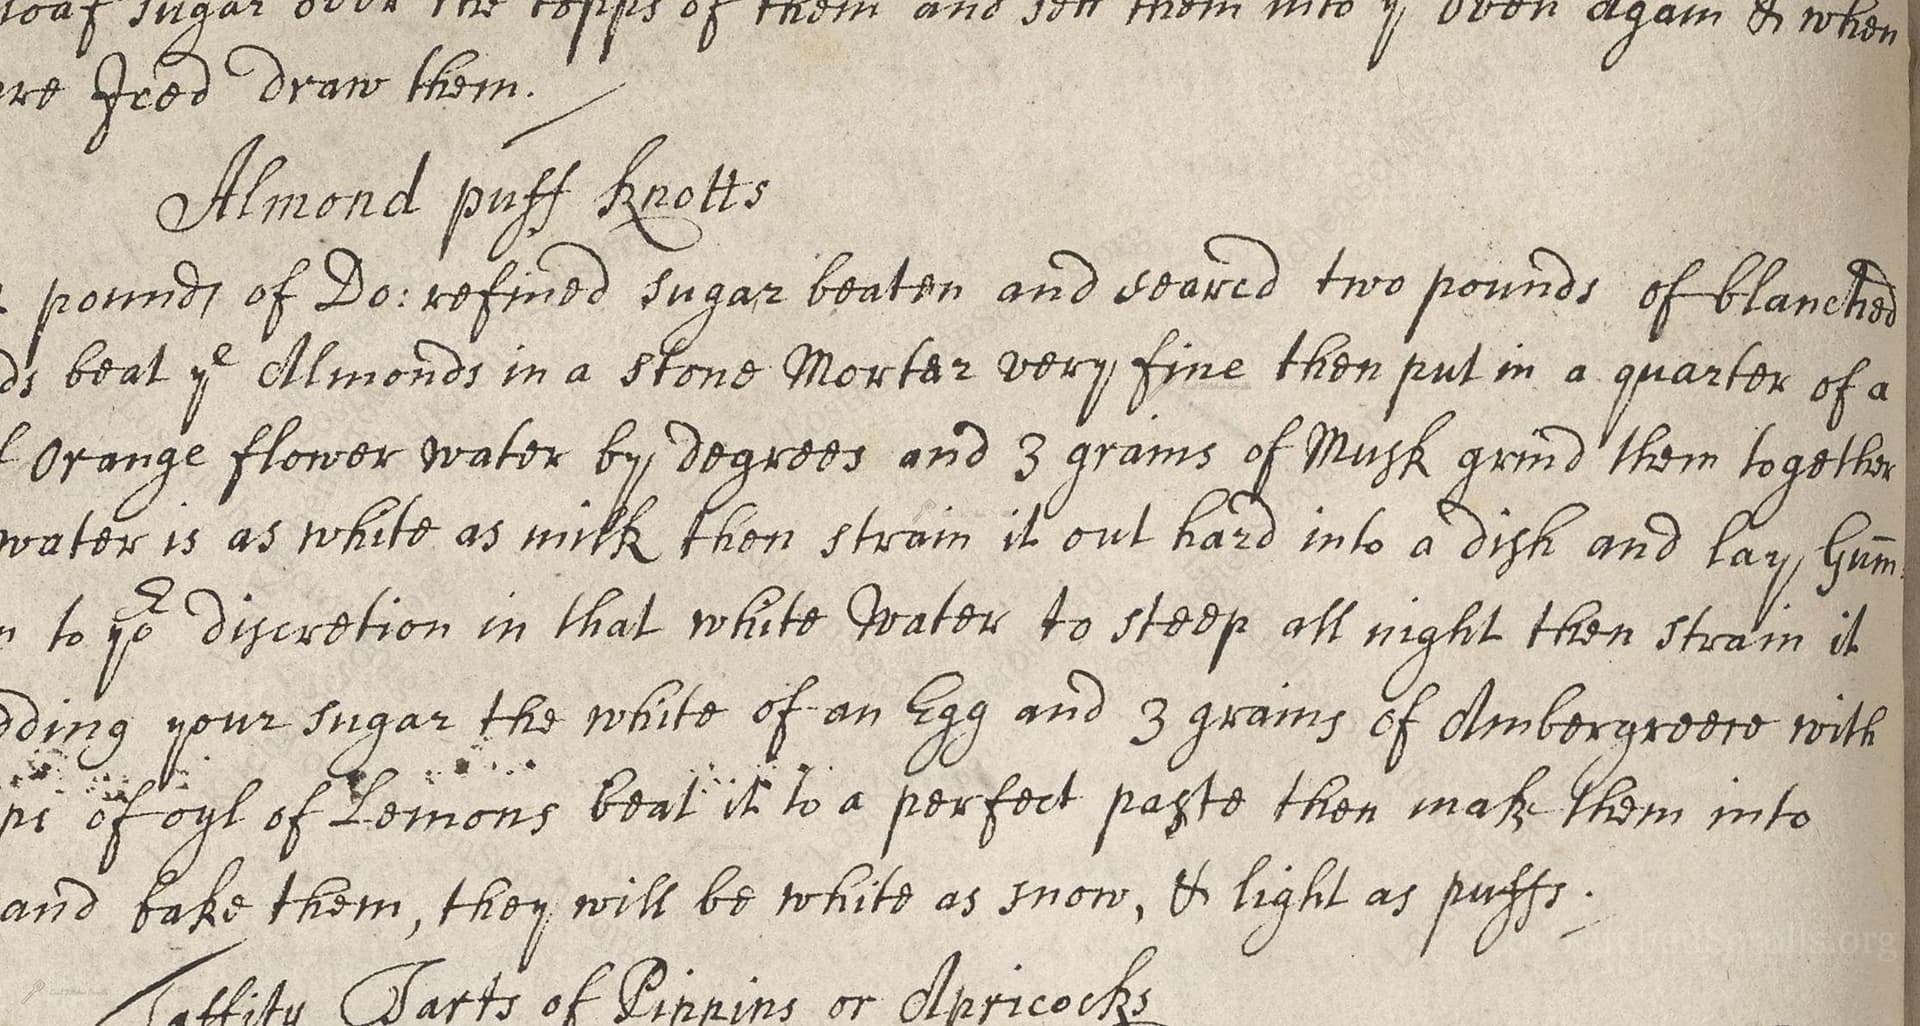 loaf sugar over the topps of them and sett them into ye oven again & when
are Iced draw them.
Almond puff knotts
pounds of Do: refined sugar beaten and searcd two pounds of blanched
ds beat ye Almonds in a stone Mortar very fine then put in a quarter of a
Orange flower water by degrees and 3 grains of Musk grind them together
water is as white as milk then strain it out hard into a dish and lay Gum̄
to yor discretion in that white Water to steep all night then strain it
dding your sugar the white of an Egg and 3 grains of Ambergreece with
ps of oyl of Lemons beat it to a perfect paste then make them into
and bake them, they will be white as snow, & light as puffs.
Taffity Tarts of Pippins or Apricocks